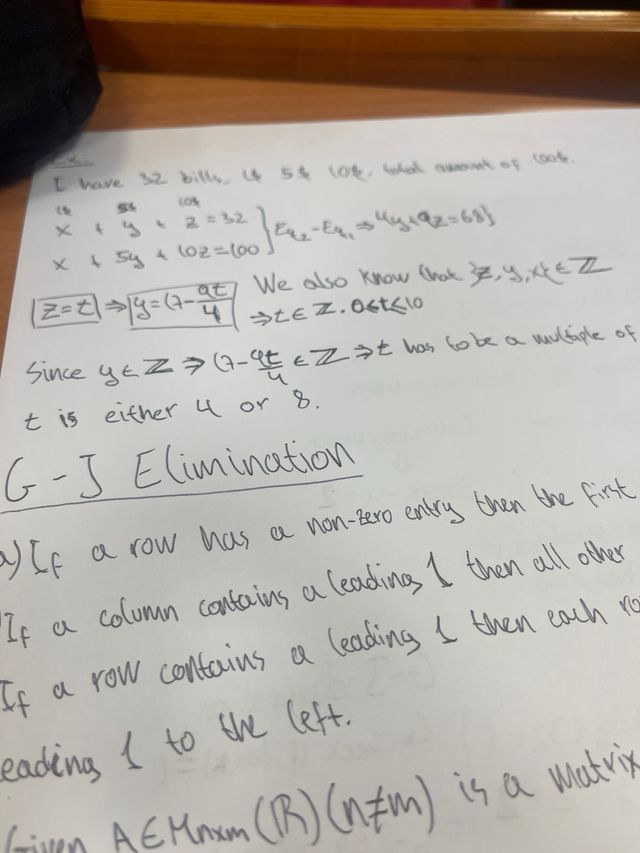 Ex:
I have 32 bills, 1$ 5$ 10$, total amount of 100$.
1$ 5$ 10$
x + y + z = 32
x + 5y + 10z = 100 } Eq2 - Eq1 ⇒ 4y + 9z = 68
z = t ⇒ y = 17 - 9t/4 We also know that z, y, x ∈ ℤ
⇒ t ∈ ℤ. 0 ≤ t ≤ 10
Since y ∈ ℤ ⇒ 17 - 9t/4 ∈ ℤ ⇒ t has to be a multiple of
t is either 4 or 8.
G-J Elimination
a) If a row has a non-zero entry then the first
If a column contains a leading 1 then all other
If a row contains a leading 1 then each
leading 1 to the left.
Given A ∈ Mnxm (ℝ) (n≠m) is a matrix